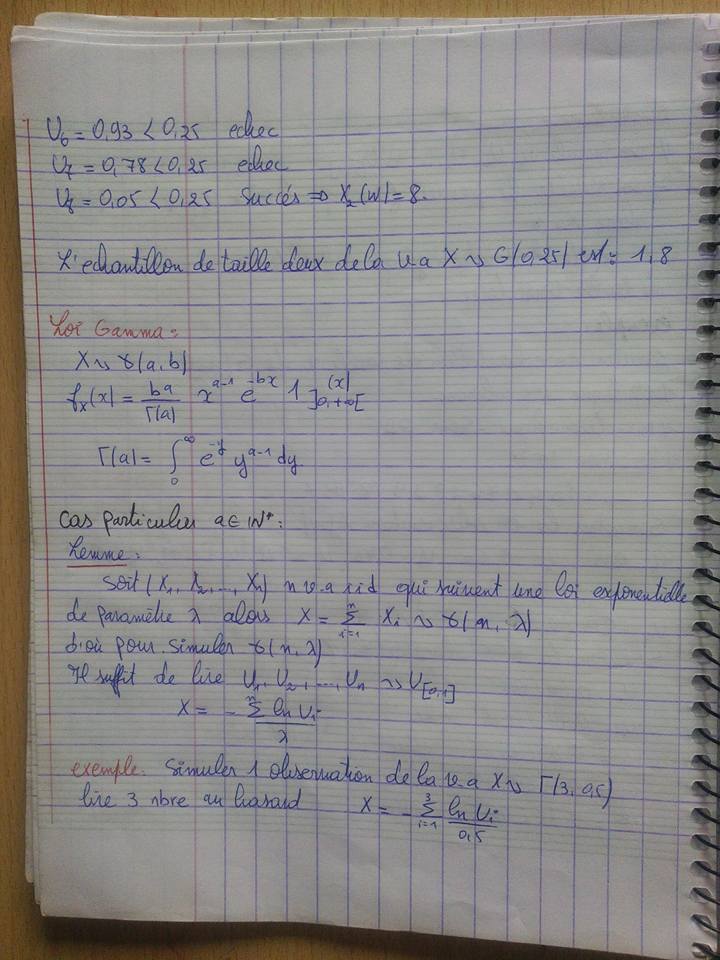 U₆ = 0,93 < 0,25 echec
U₇ = 0,78 < 0,25 echec
U₈ = 0,05 < 0,25 Succés ⇒ X₂(W) = 8.
L'echantillon de taille deux de la v.a X ~ G(0,25) est : 1, 8
Loi Gamma :
X ~ γ(a, b)
fₓ(x) = bᵃ/Γ(a) xᵃ⁻¹ e⁻ᵇˣ 1 ]0,+∞[ (x)
Γ(a) = ∫₀^∞ e⁻ʸ yᵃ⁻¹ dy
cas particulier a ∈ IN* :
Lemme :
Soit (X₁, X₂, ..., Xn) n v.a iid qui suivent une loi exponentielle
de paramètre λ alors X = Σᵢ₌₁ⁿ Xᵢ ~ γ(n, λ)
D'où pour simuler γ(n, λ)
Il suffit de lire U₁, U₂, ..., Un ~ U[0,1]
X = - Σⁿ ln Uᵢ / λ
exemple. Simuler 1 observation de la v.a X ~ Γ(3, 0,5)
lire 3 nbre au hasard X = - Σᵢ₌₁³ ln Uᵢ / 0,5